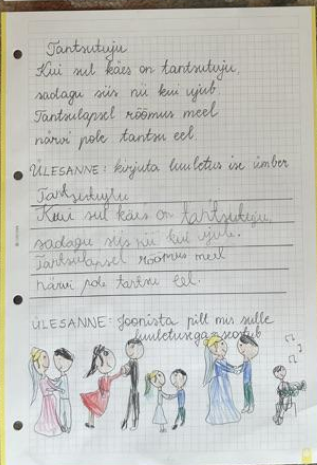 Tantsutuju
Kui sul käes on tantsutuju,
sadagu siis nii kui ujub
Tantsulapsel rõõmus meel
närvi pole tantsu eel
ÜLESANNE: kirjuta luuletus ise ümber
Tantsutuju
Kui sul käes on tantsutuju,
sadagu siis nii kui ujub.
Tantsulapsel rõõmus meel
närvi pole tantsu eel.
ÜLESANNE: Joonista pilt mis sulle
luuletusega seostub